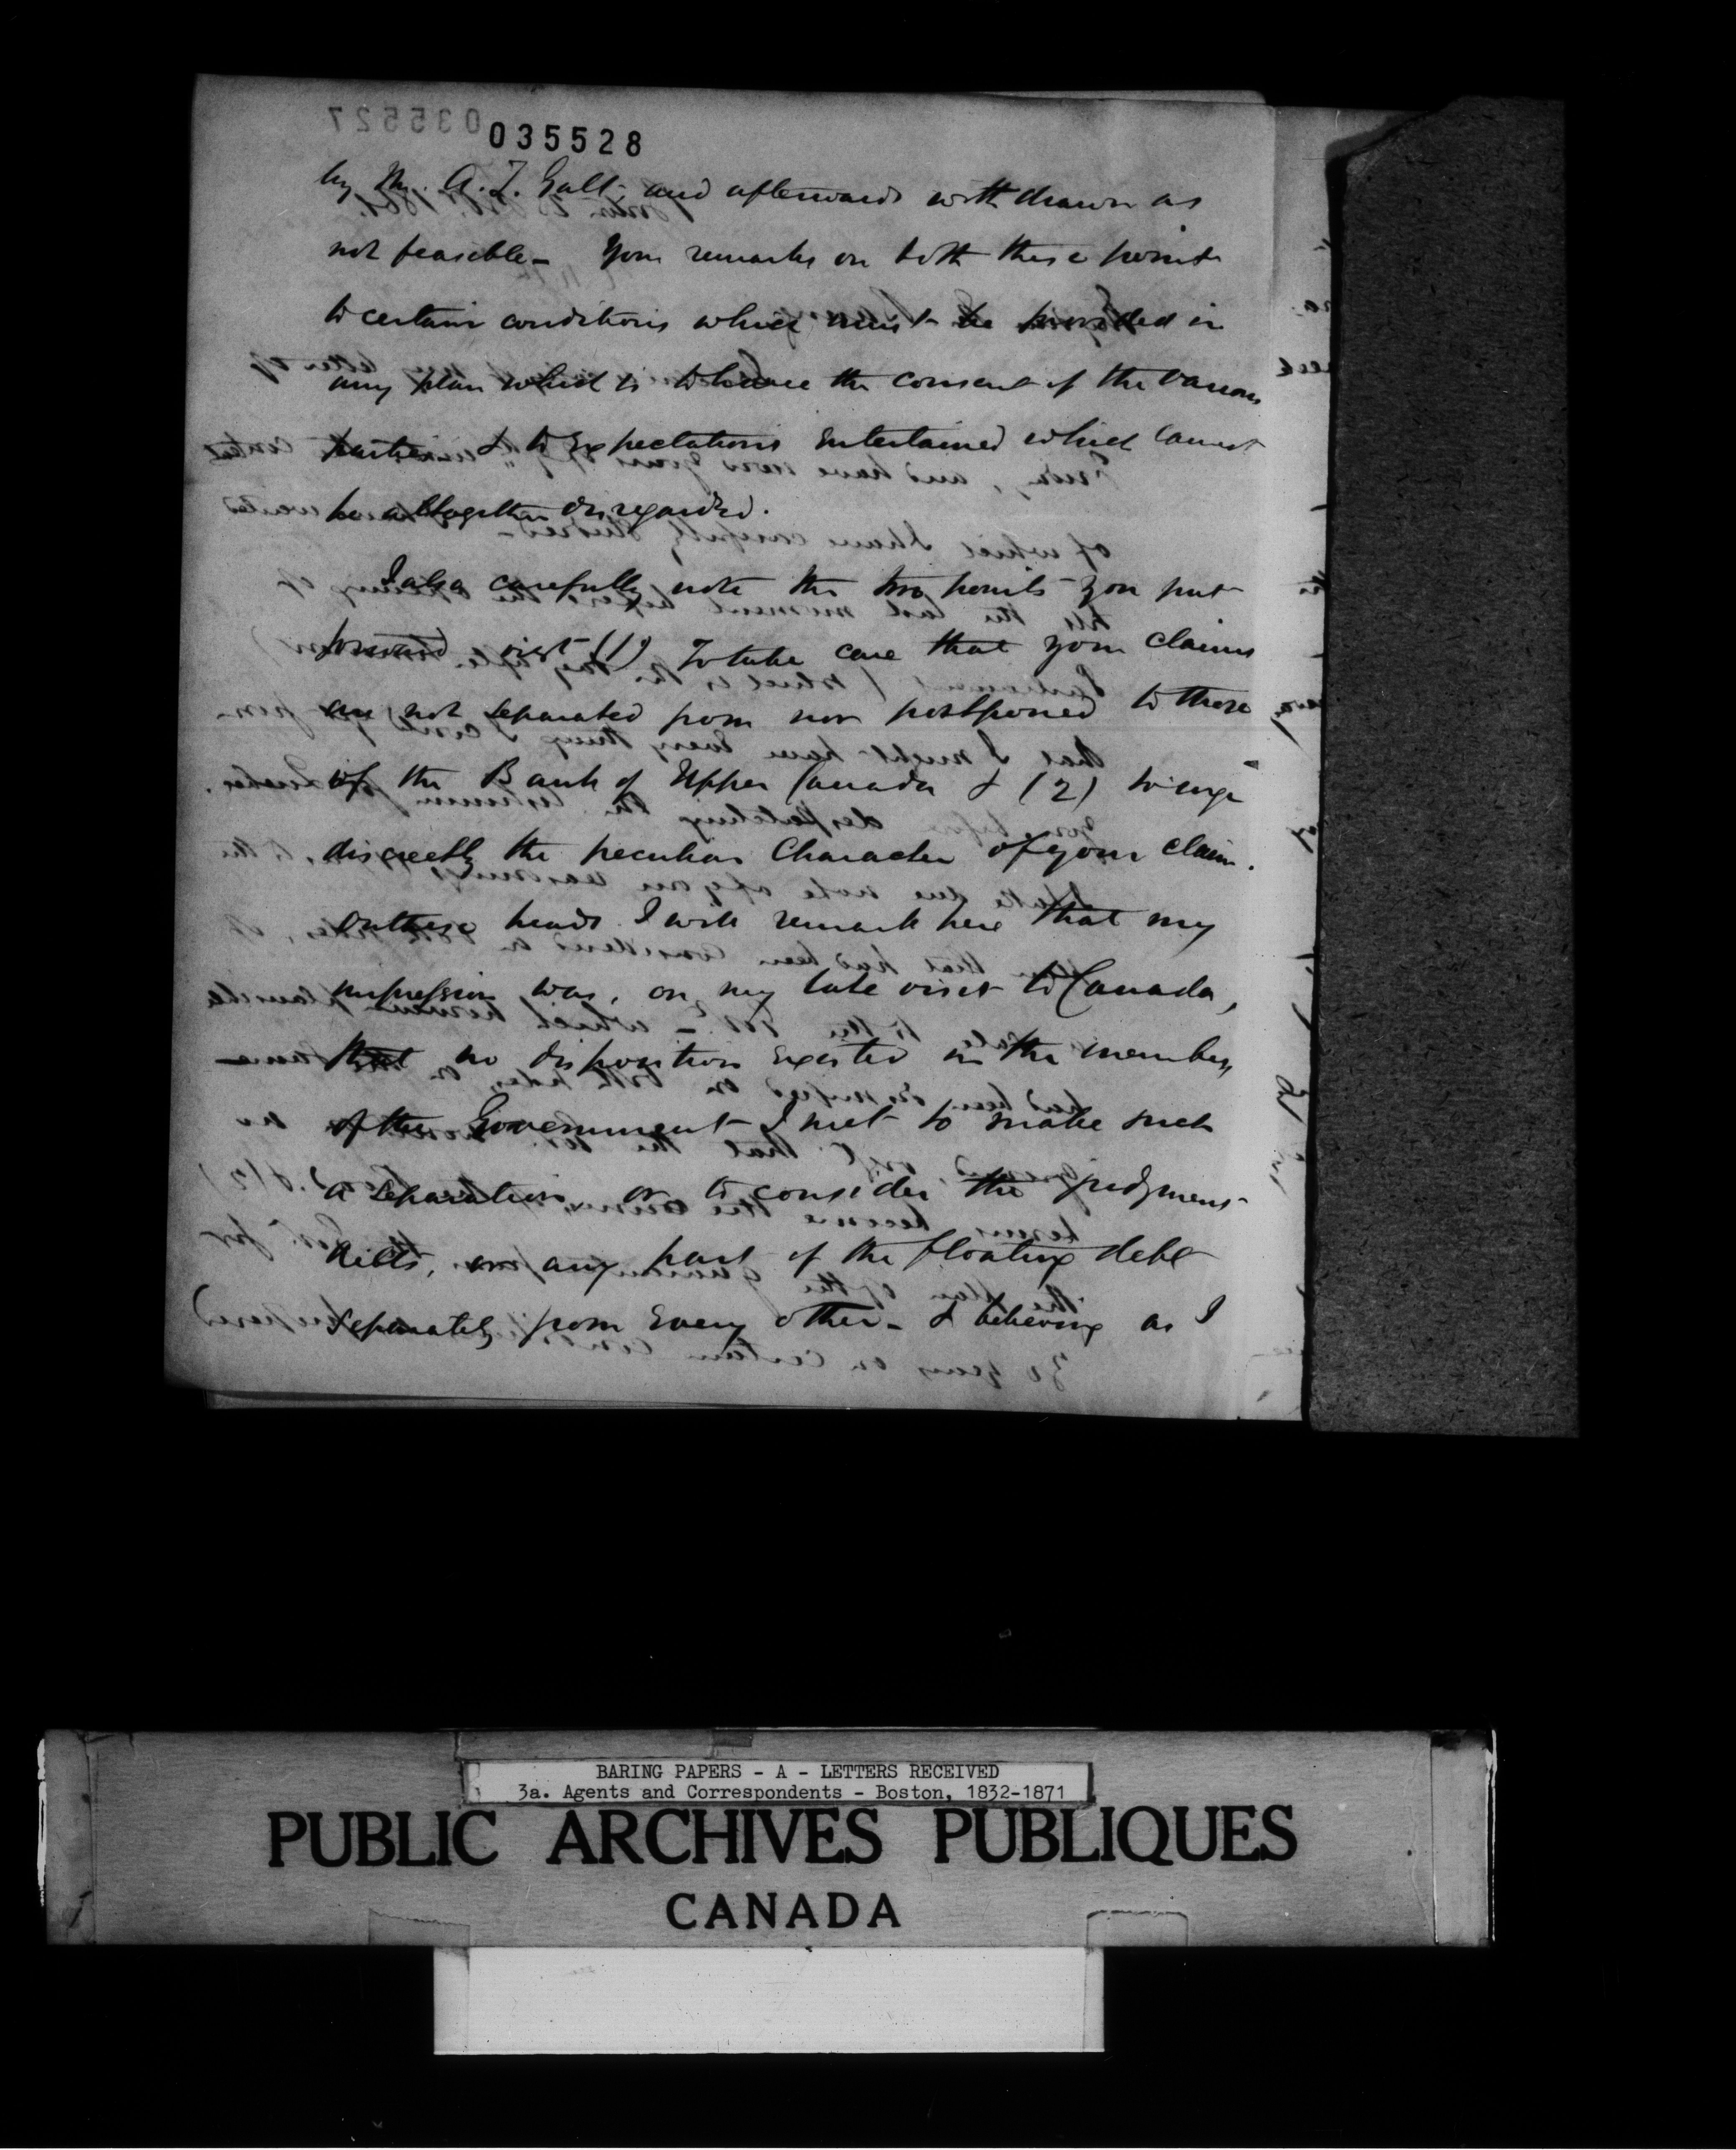 035527
035528
by Mr. A. T. Galt, and afterwards withdrawn as
not feasible - Your remarks on both these points
to certain conditions which must be provided in
any plan which is to have the consent of the various
parties & to expectations entertained which cannot
be altogether disregarded.
I also carefully note the two points you put
forward (1) To take care that your claims
are not separated from nor postponed to those
of the Bank of Upper Canada & (2) to urge
discreetly the peculiar Character of your claim.
On these heads I will remark here that my
impression was, on my late visit to Canada,
that no disposition existed in the members
of the Government I met to make such
a separation, or to consider the judgment
debts, or any part of the floating debt
separately from every other - & believing as I
BARING PAPERS - A - LETTERS RECEIVED
3a. Agents and Correspondents - Boston, 1832-1871
PUBLIC ARCHIVES PUBLIQUES
CANADA